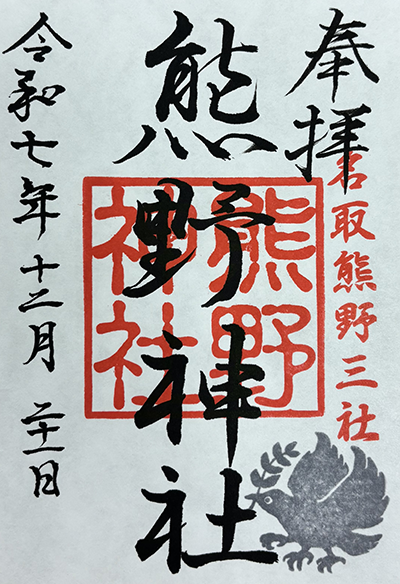 奉拝
名取熊野三社
熊野神社
熊野
神社
令和七年十二月二十一日